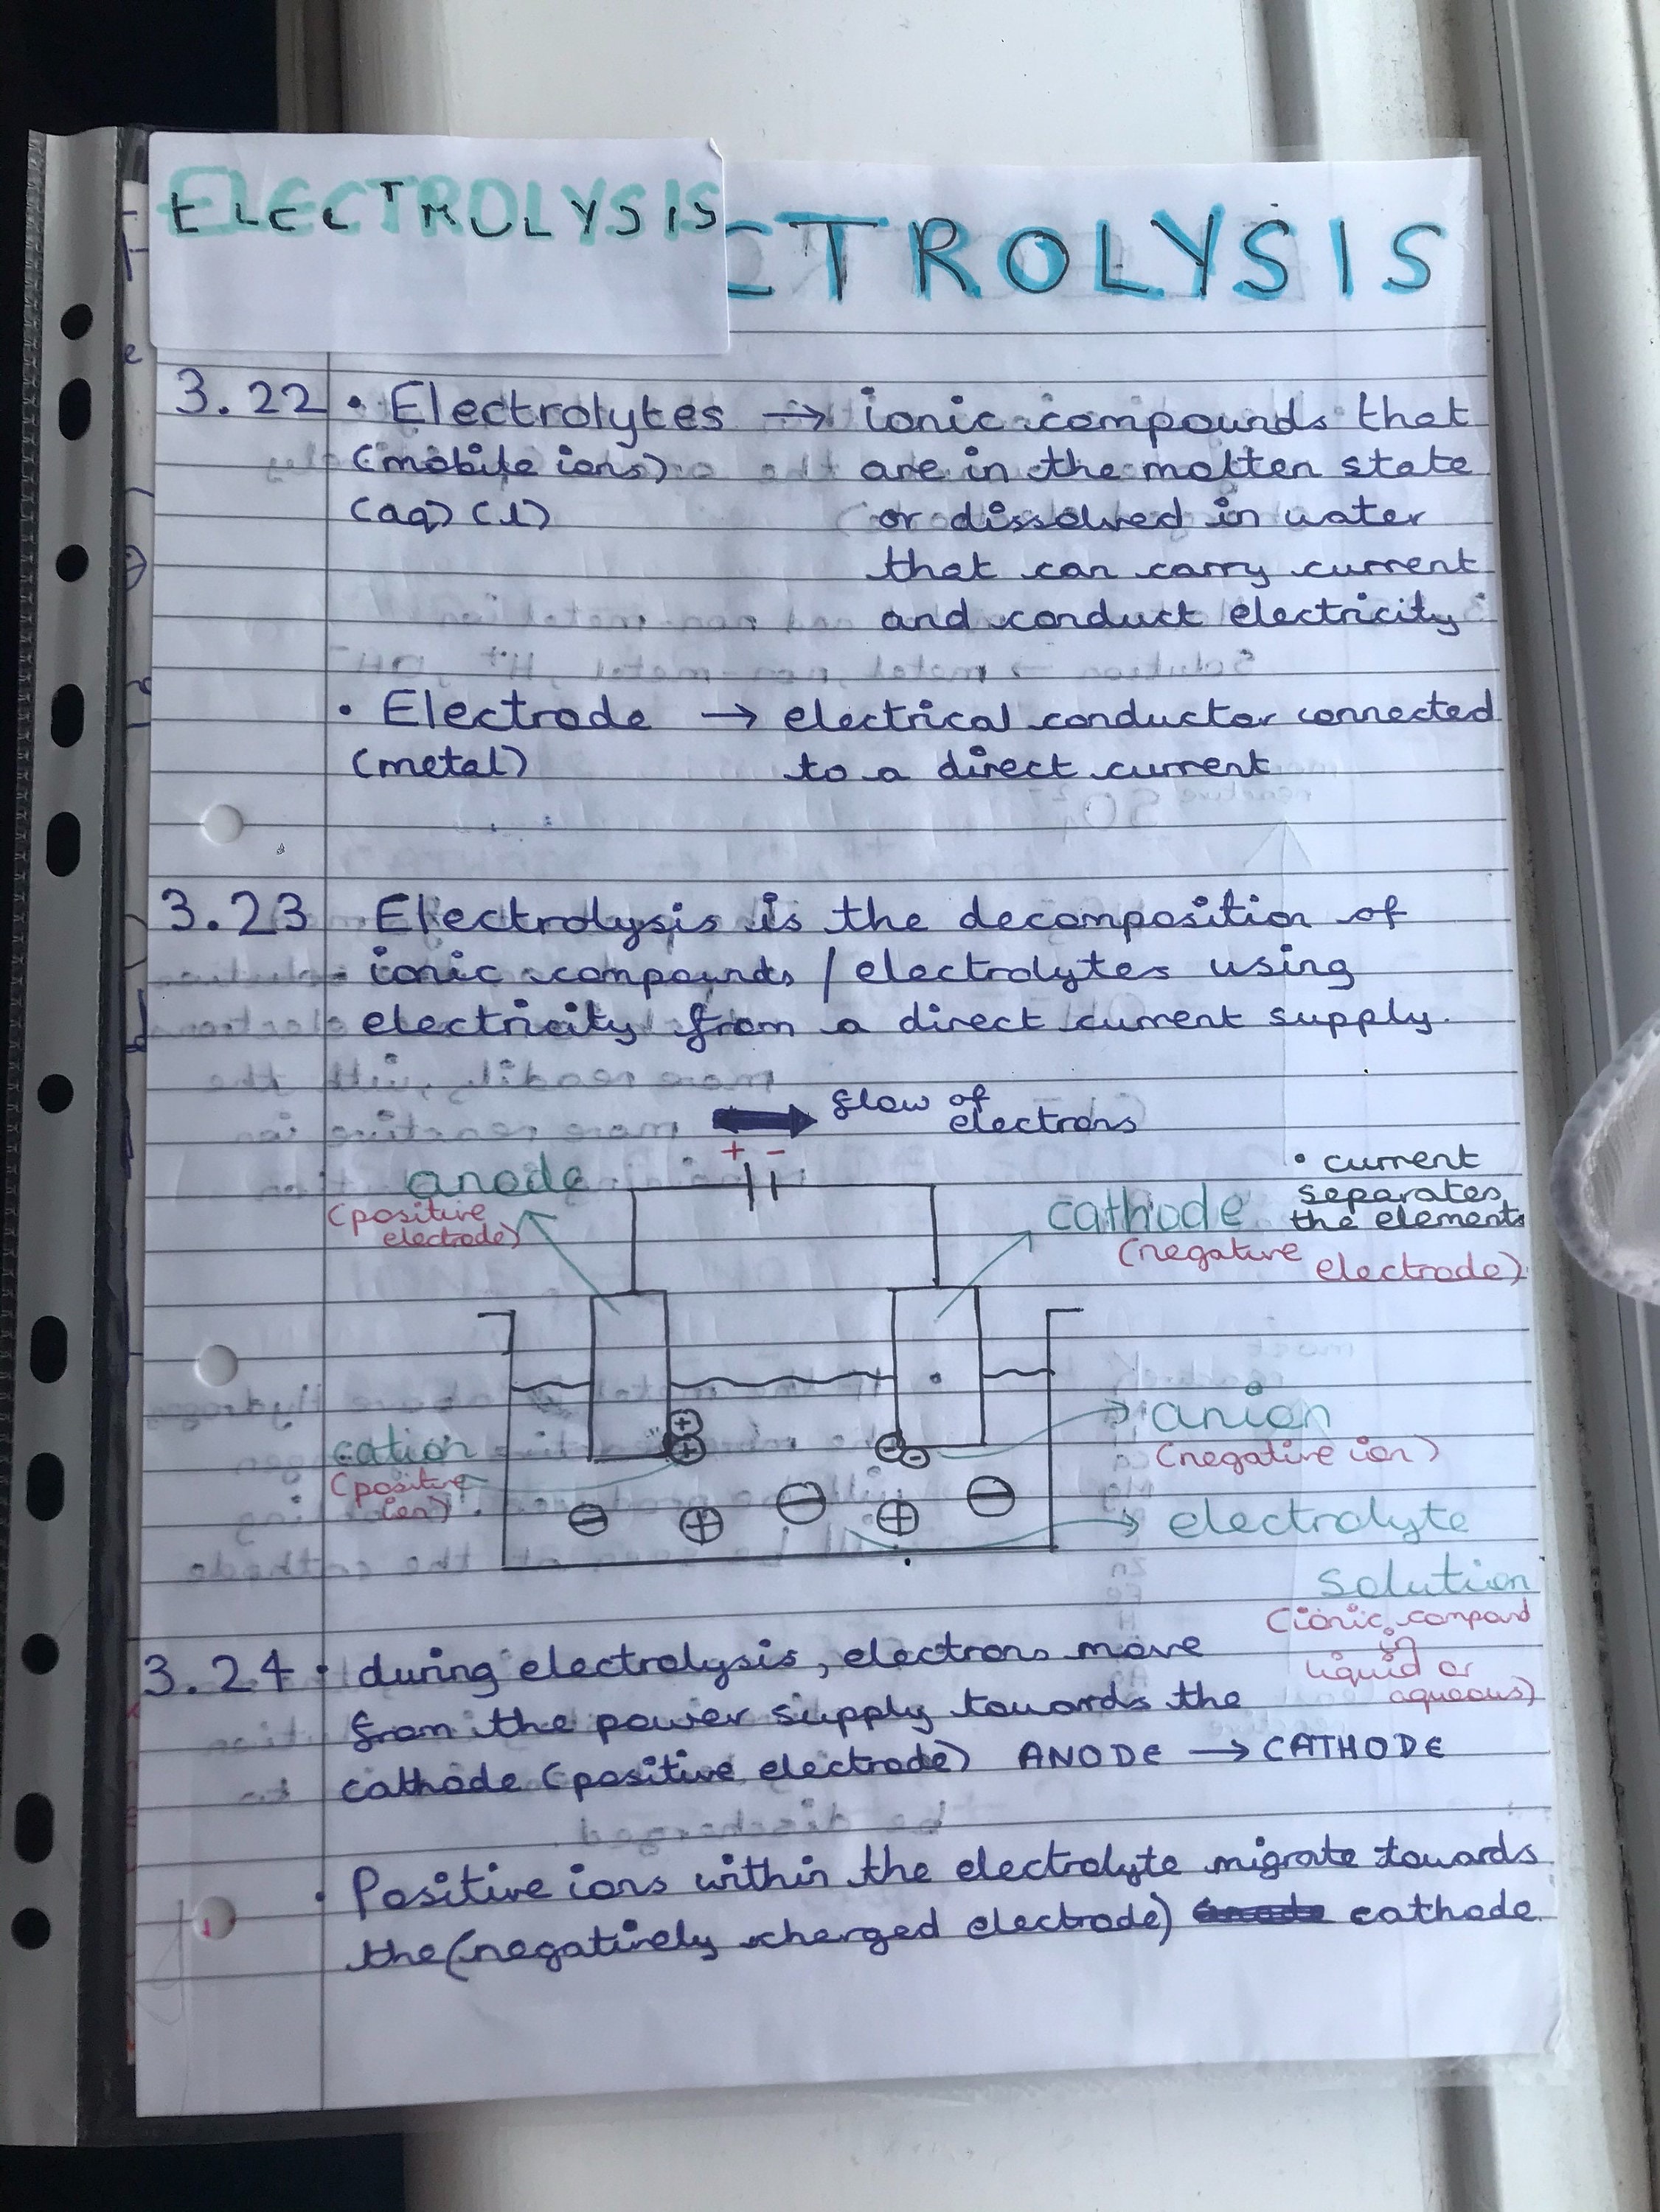 ELECTROLYSIS
CTROLYSIS
3.22 • Electrolytes → ionic compounds that
(mobile ions) are in the molten state
(aq) (l) or dissolved in water
that can carry current
and conduct electricity
• Electrode → electrical conductor connected
(metal) to a direct current
3.23 Electrolysis is the decomposition of
ionic compounds / electrolytes using
electricity from a direct current supply.
flow of
electrons
+ -
anode
(positive
electrode)
cathode
(negative
electrode)
• current
separates
the elements
cation
(positive
ion)
anion
(negative ion)
electrolyte
solution
(ionic compound
in
liquid or
aqueous)
3.24 • during electrolysis, electrons move
from the power supply towards the
cathode (positive electrode) ANODE → CATHODE
• Positive ions within the electrolyte migrate towards
the (negatively charged electrode) cathode